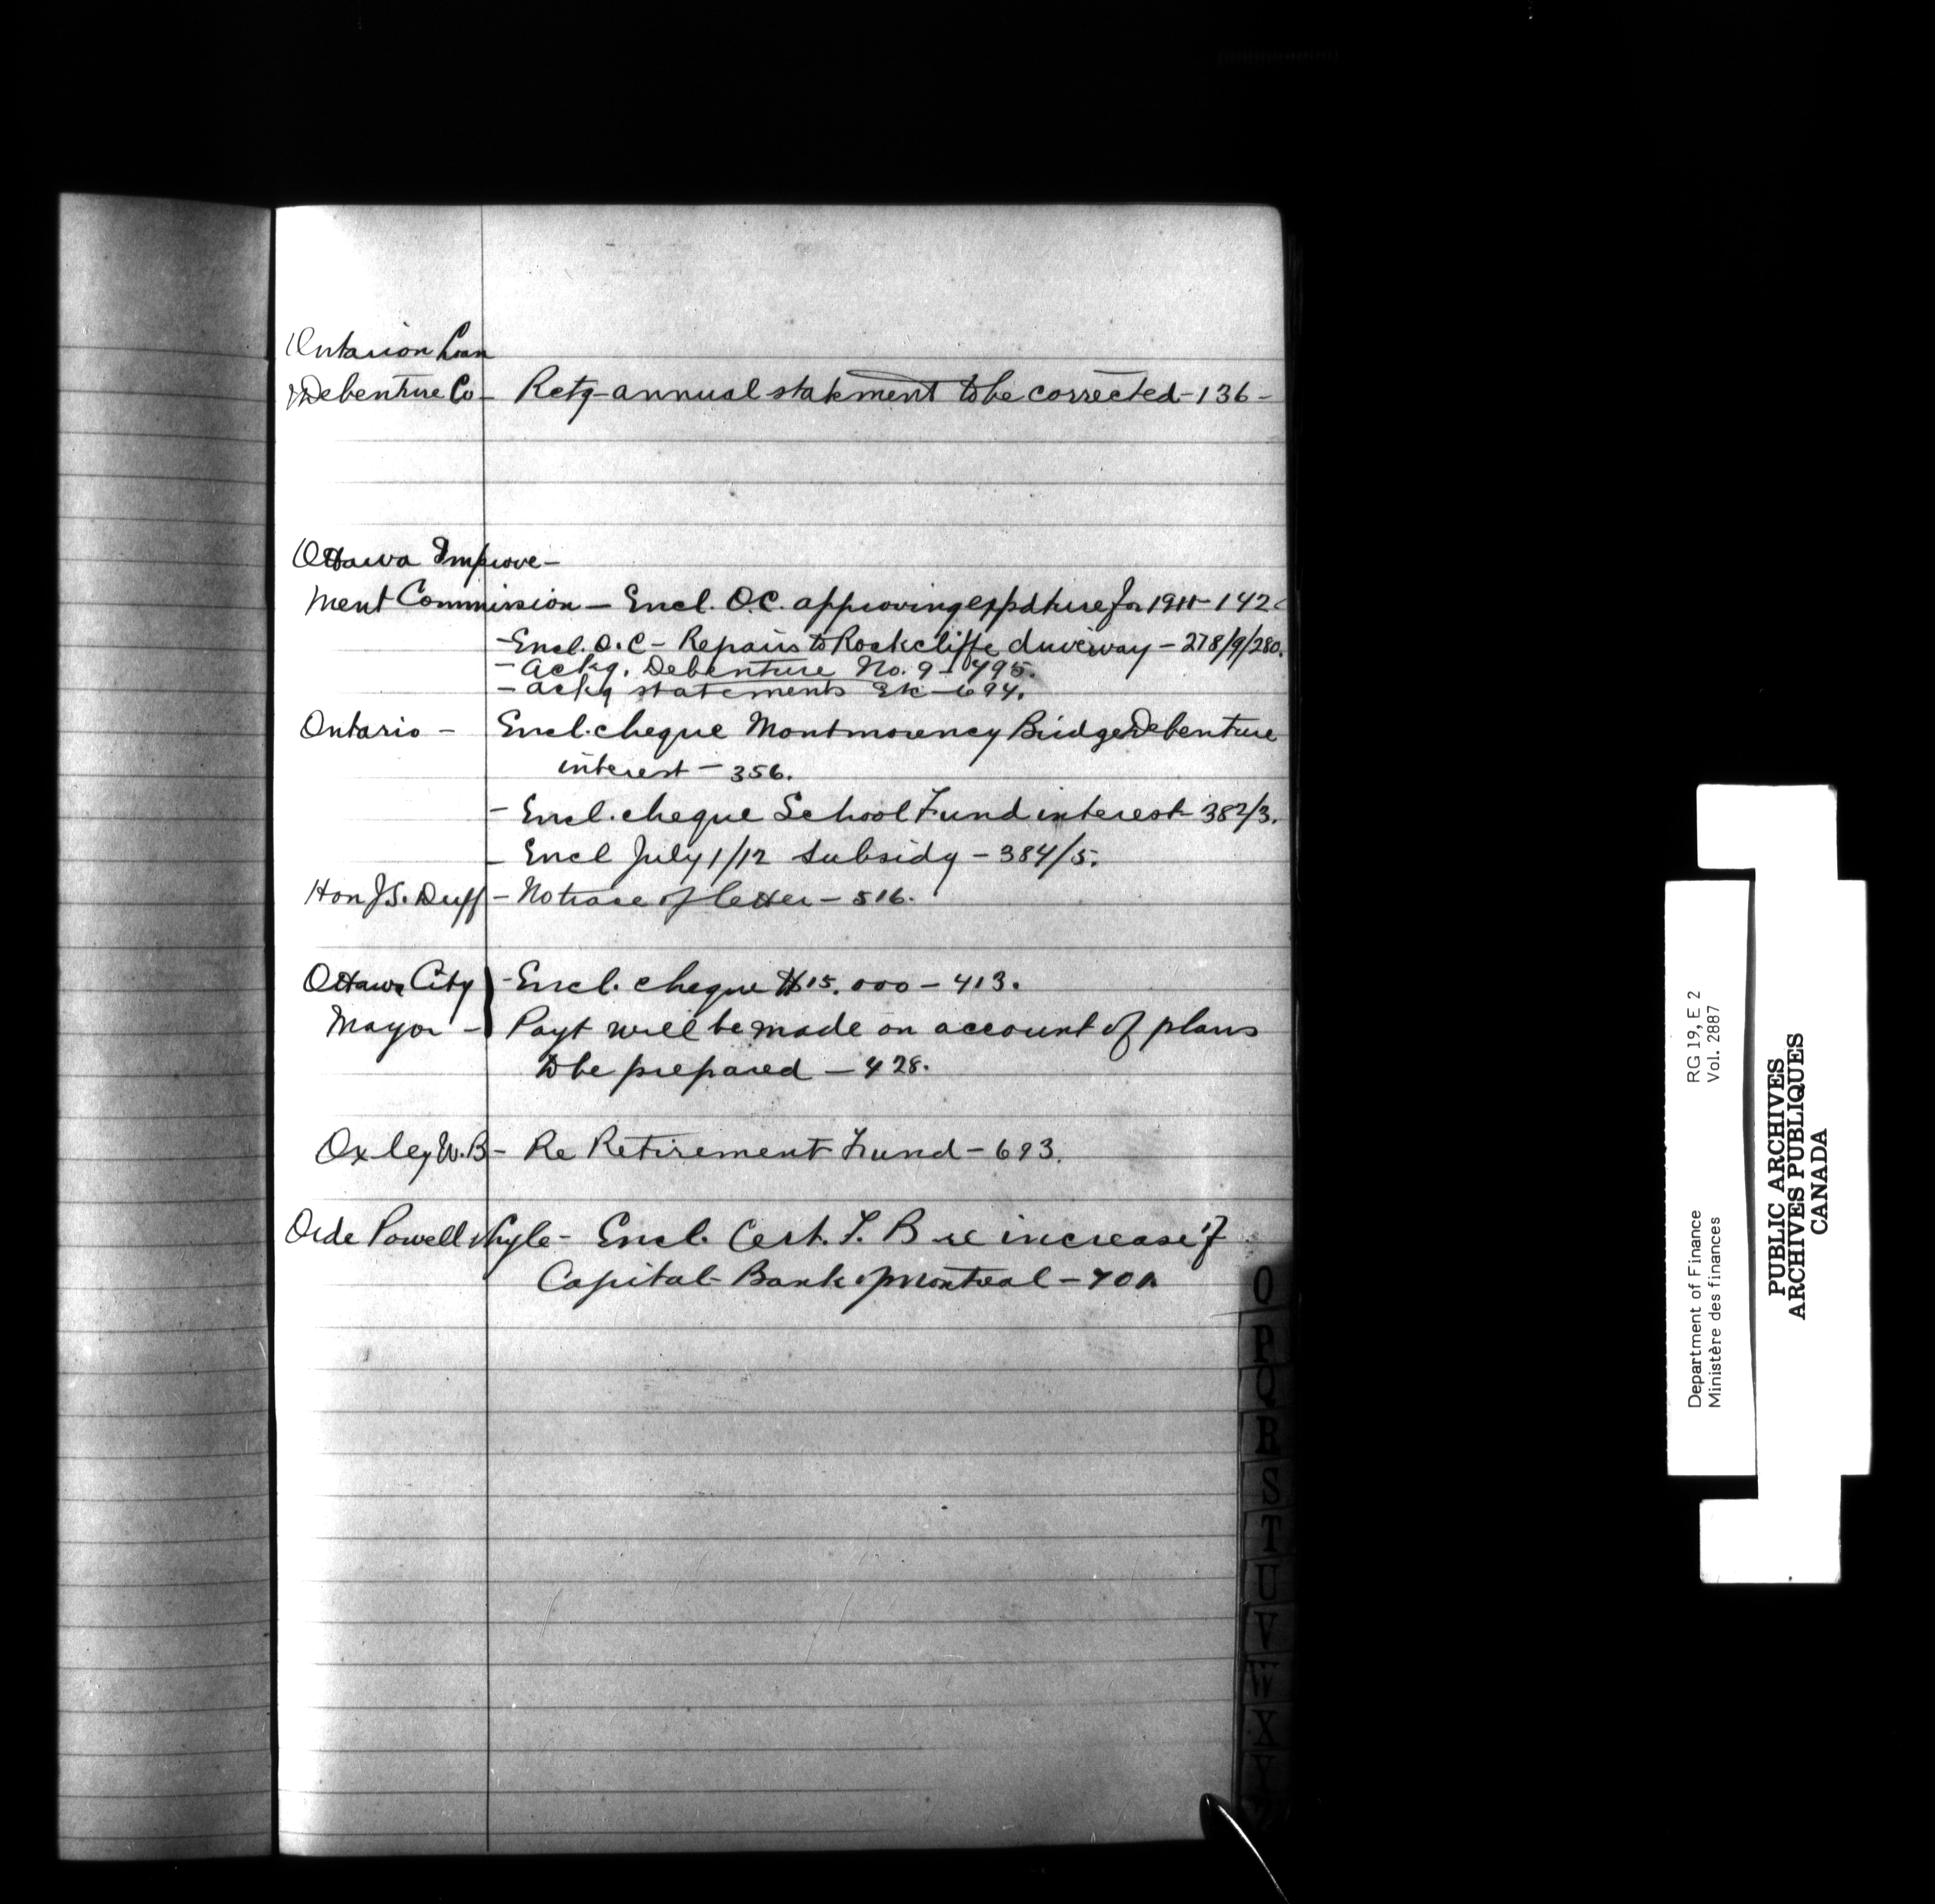 Ontarion Loan
& Debenture Co - Retg annual statement to be corrected - 136 -
Ottawa Improve-
ment Commission - Encl. O.C. approving exp'dture for 1911 - 142
- Encl. O.C - Repairs to Rockcliffe driveway - 278/9/280.
- Ackg. Debenture No. 9 - 495.
- ackg statements Etc - 694.
Ontario - Encl. cheque Montmorency Bridge Debenture
interest - 356.
- Encl. cheque School Fund interest - 382/3.
- Encl July 1/12 subsidy - 384/5.
Hon J.S. Duff - No trace of letter - 516.
Ottawa City - Encl. cheque $15,000 - 413.
Mayor - Payt will be made on account of plans
to be prepared - 428.
Oxley W.B - Re Retirement Fund - 693.
Orde Powell & Lyle - Encl. Cert. T. B re increase of
Capital Bank of Montreal - 701.
O
P
Q
R
S
T
U
V
W
X
Y
Z
Department of Finance RG 19, E 2
Ministère des finances Vol. 2887
PUBLIC ARCHIVES
ARCHIVES PUBLIQUES
CANADA